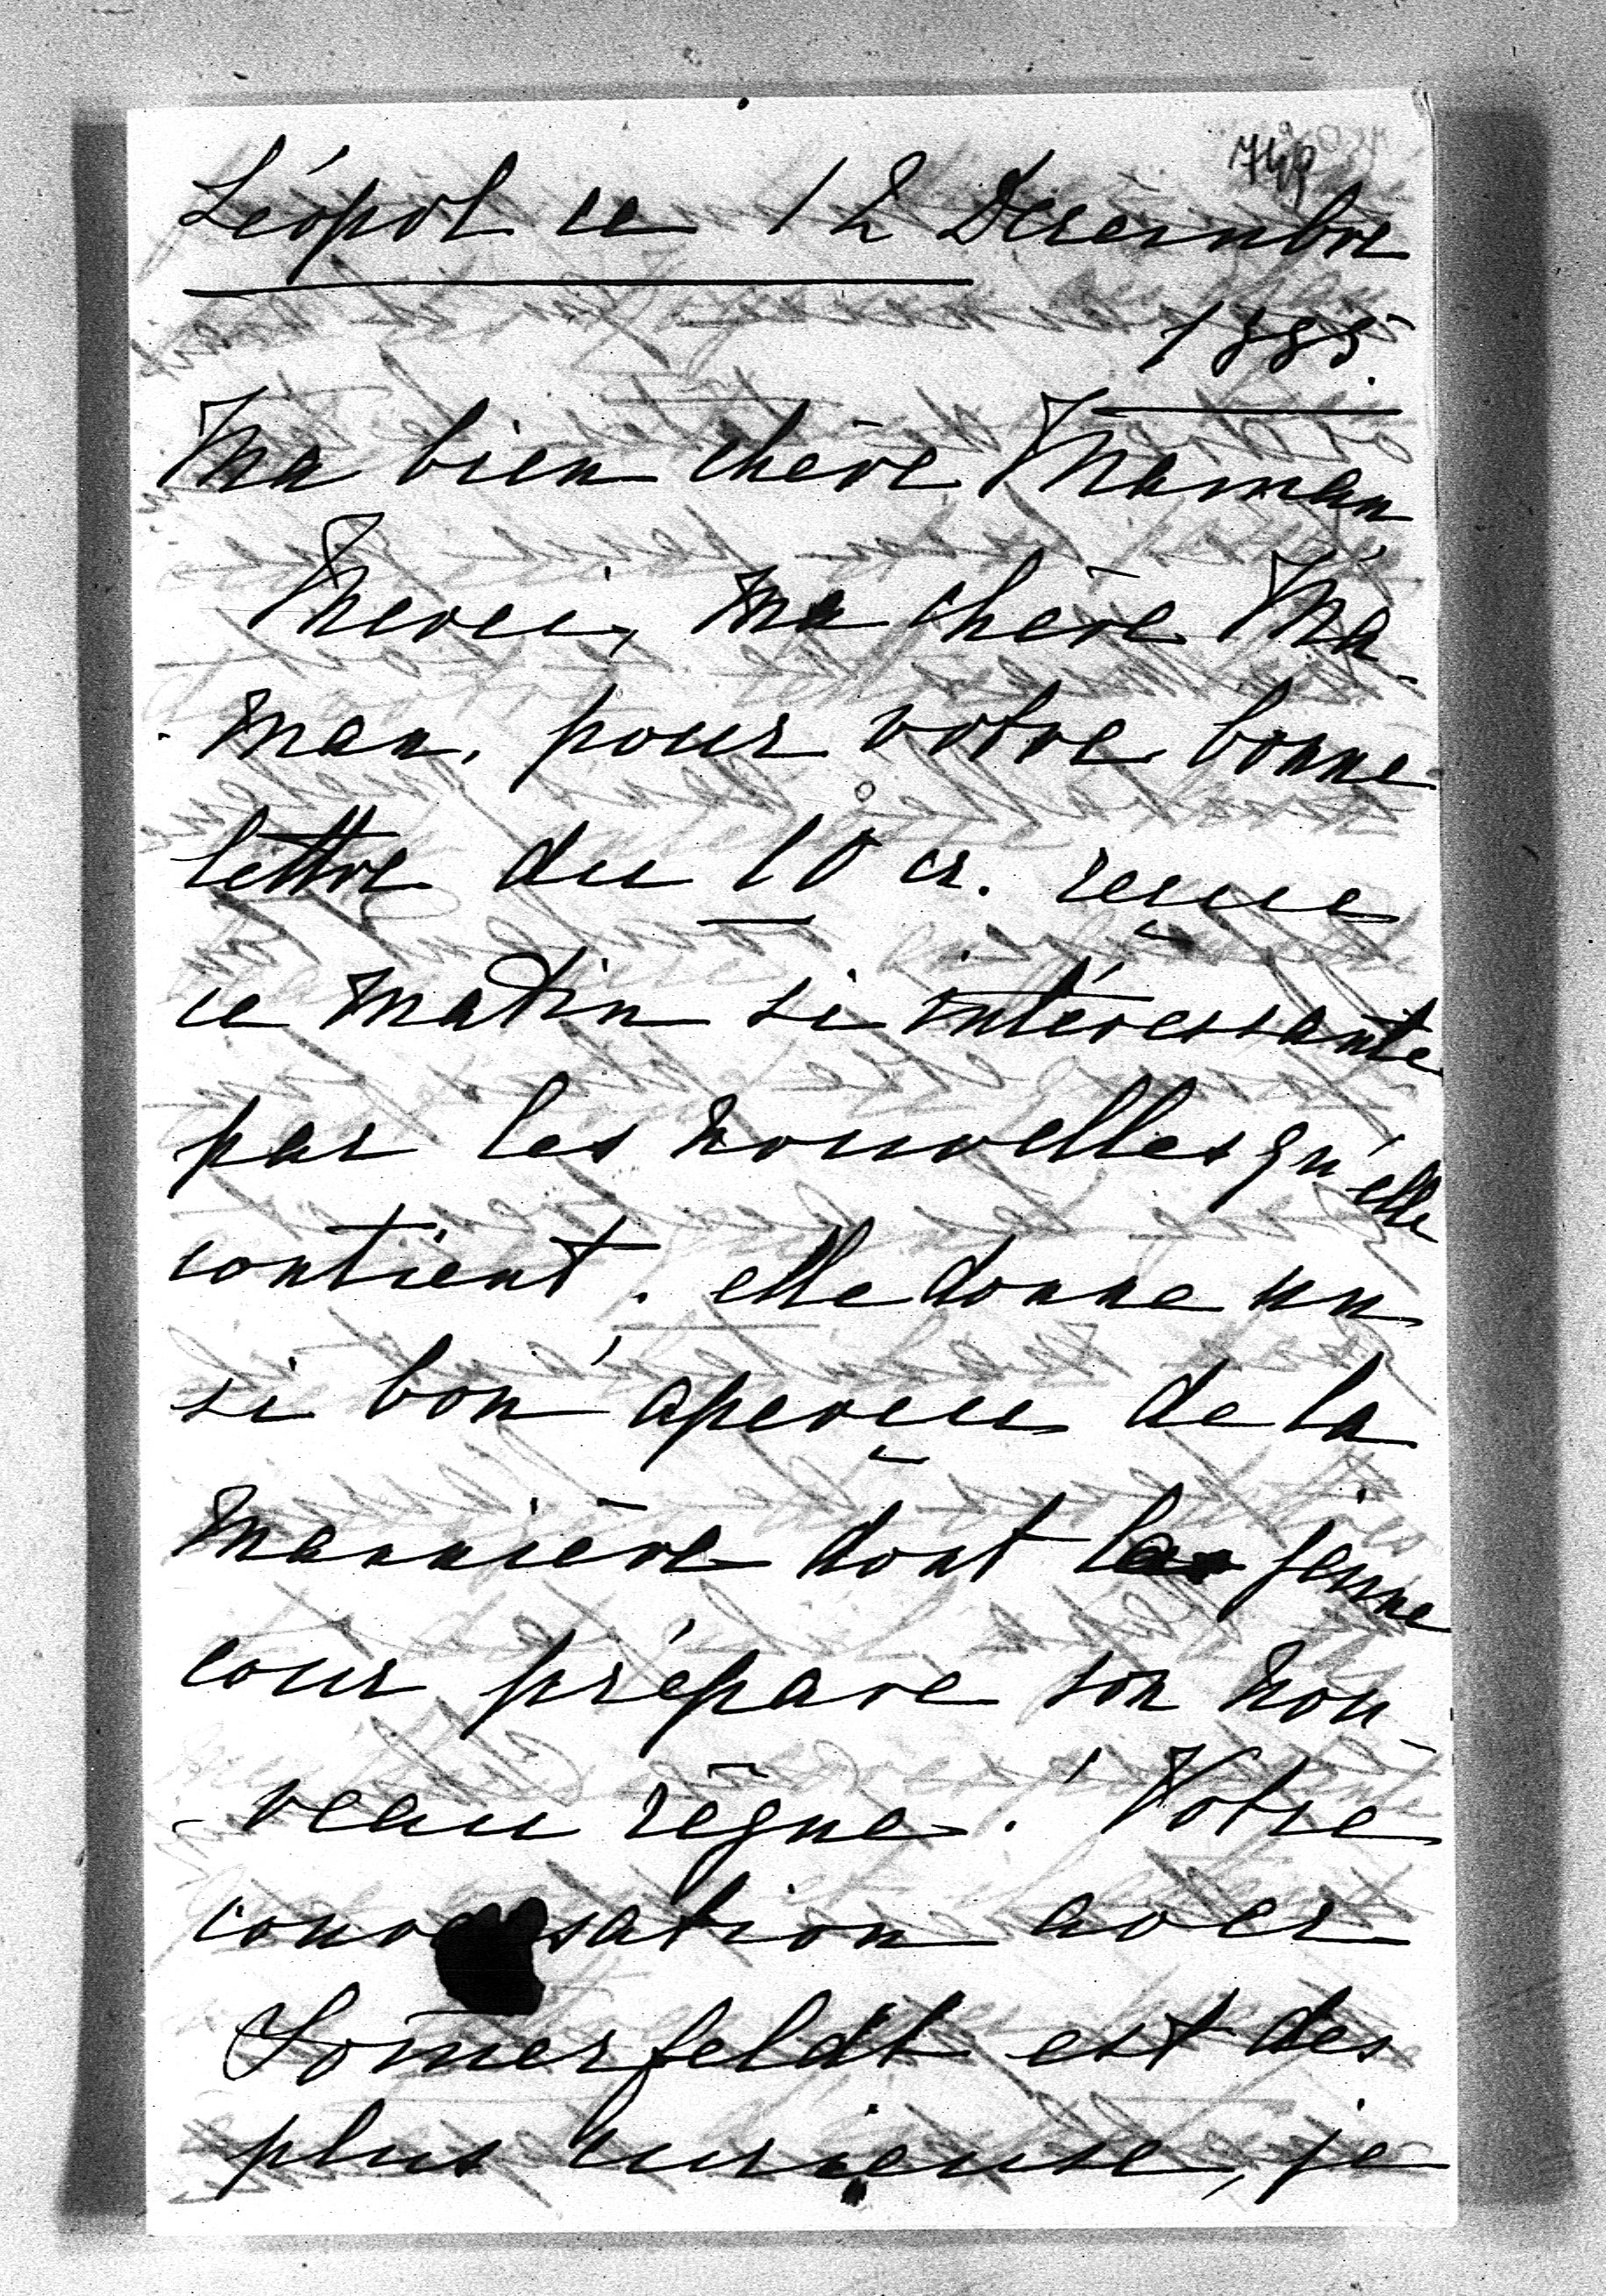 Léopol ce 12 Decembre
1885.
Ma bien chère Maman
Merci, ma chère Ma-
-man, pour votre bonne
lettre du 10 cr. reçue
ce matin si intéressante
par les nouvelles qu'elle
contient. elle donne un
si bon aperçu de la
mannière dont la jeune
cour prépare son nou-
-veau règne. Votre
conversation avec
Somerfeldt est des
plus curieuse, je